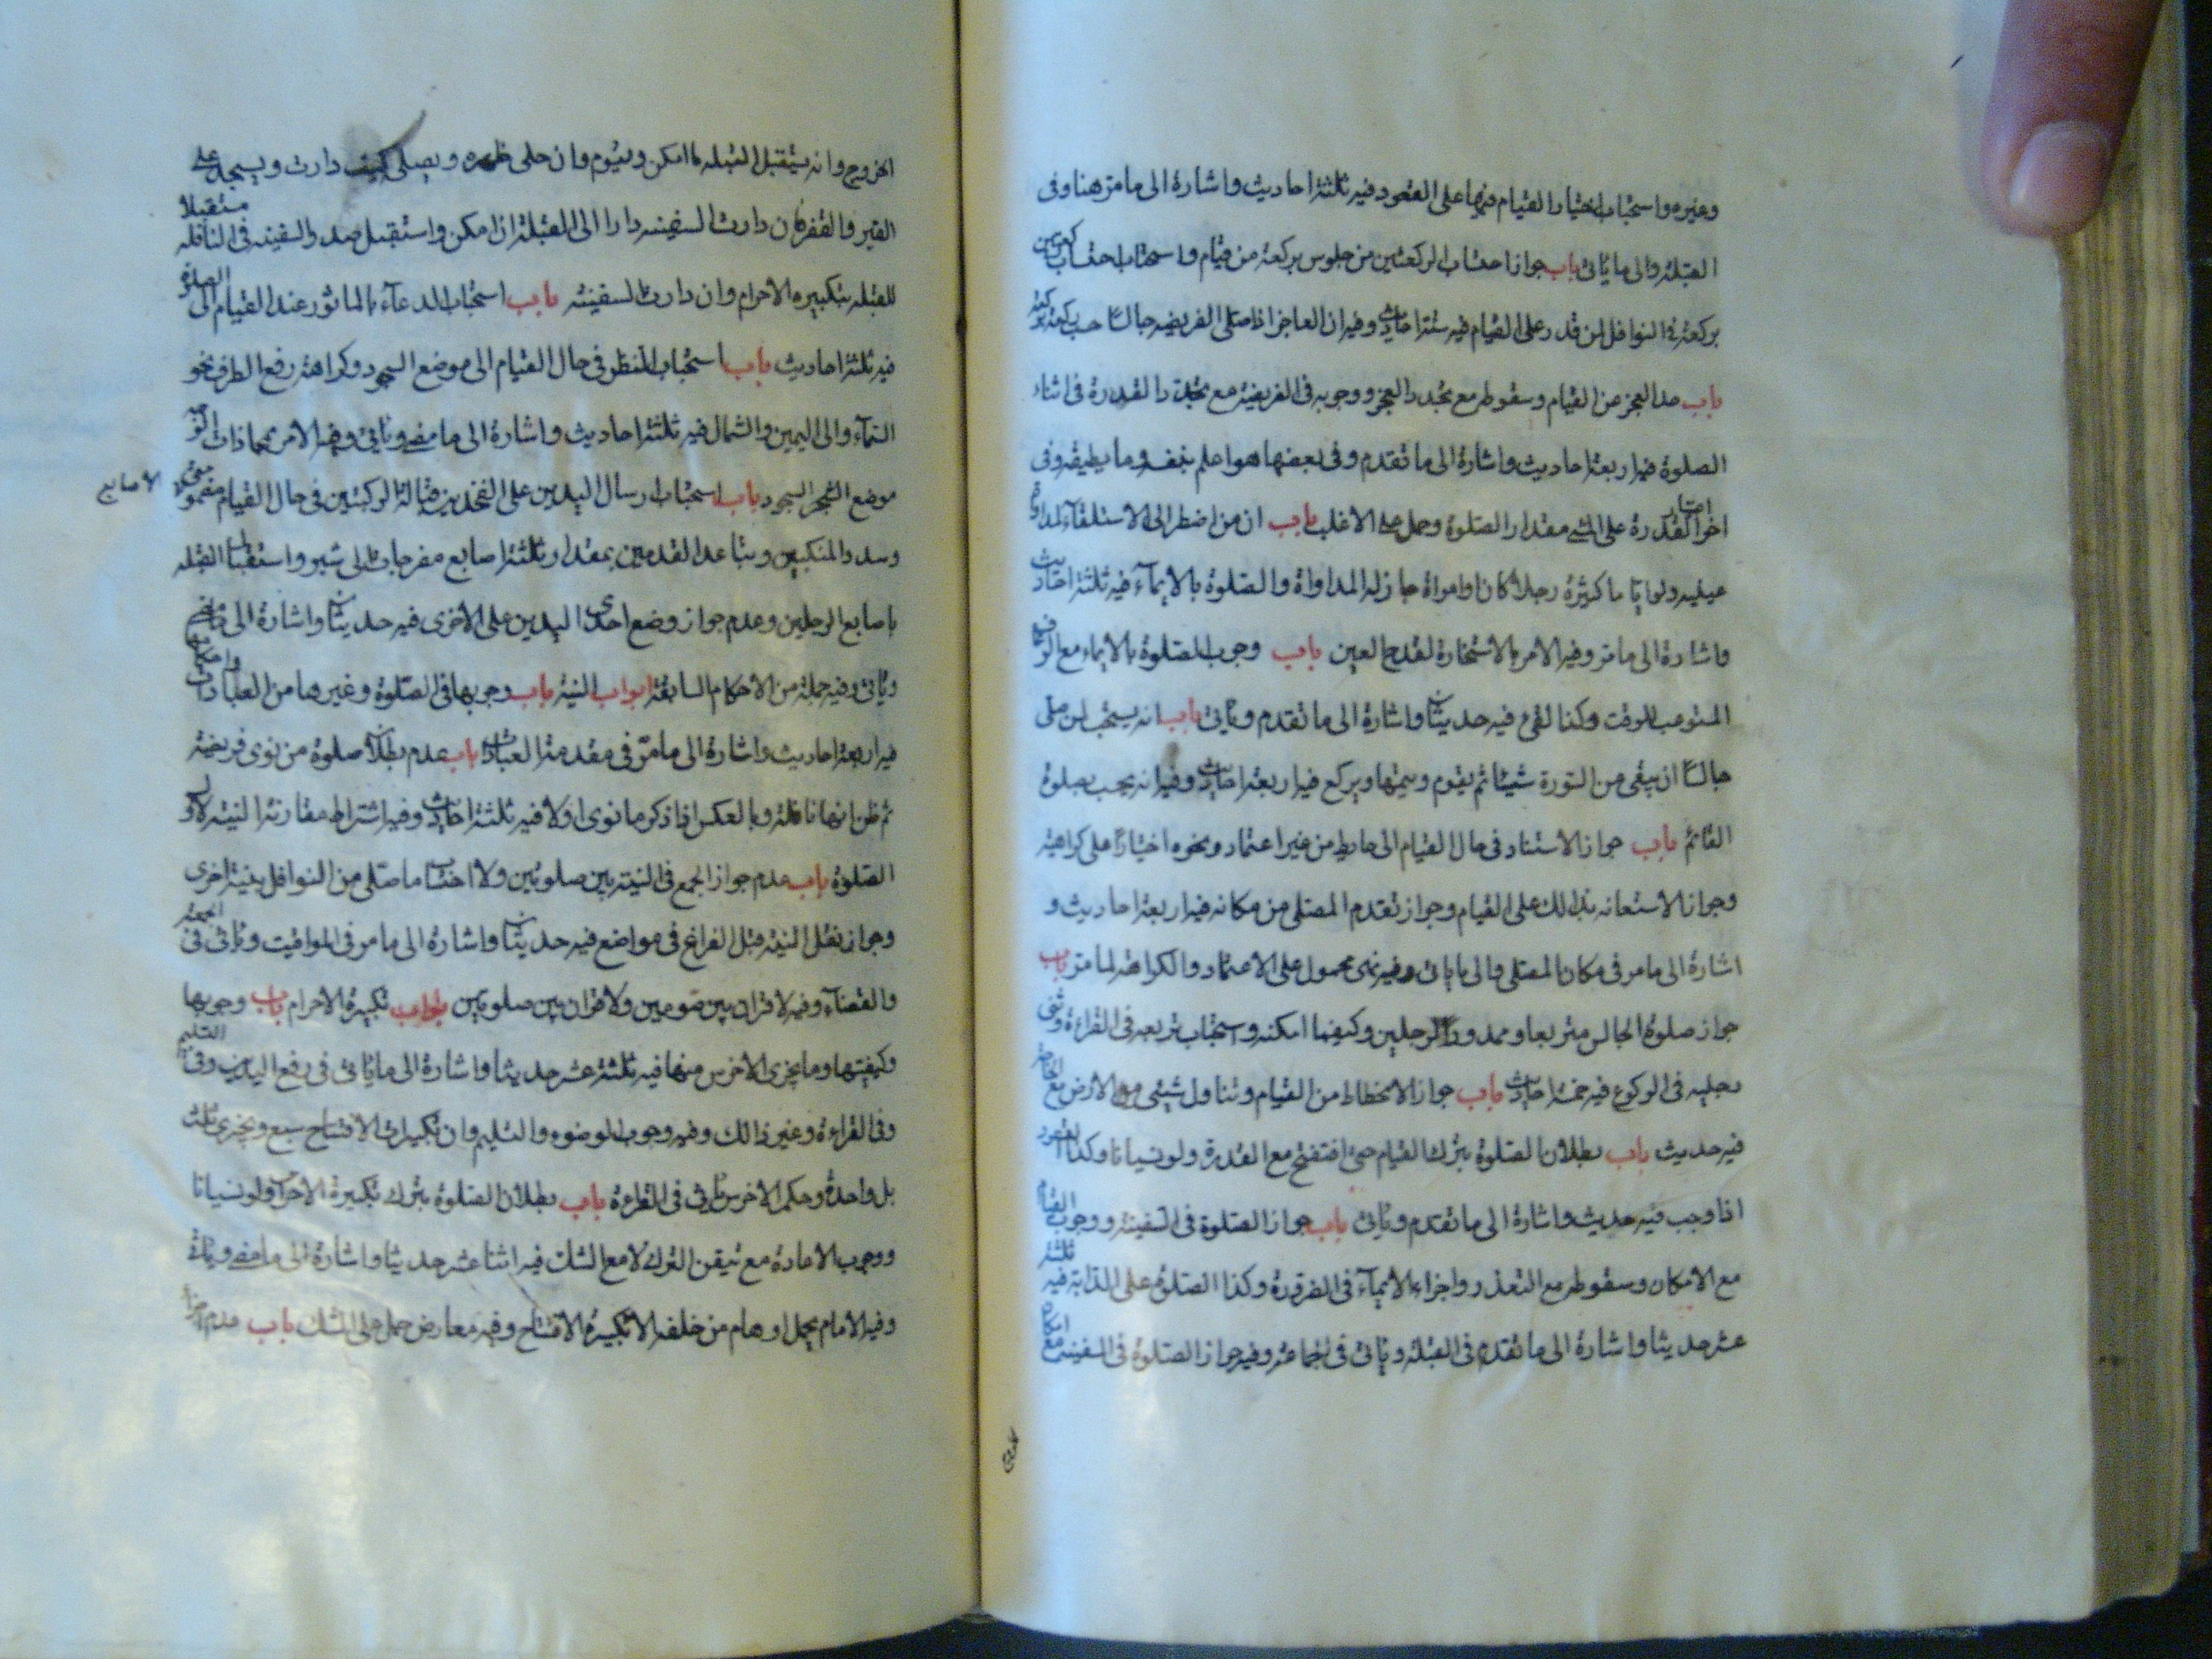 وغيره واستحباب اختيار القيام فيها على القعود فيه ثلثة احاديث واشارة الى ما مر هنا وفى
القبلة والى ما ياتى باب جواز احتساب الركعتين من جلوس بركعة من قيام واستحباب احتساب ركعتين
بركعة فى النوافل لمن قدر على القيام فيه ستة احاديث وفيه ان العاجز اذا صلى الفريضه جالسا حسب ركعة بركعة
باب حد العجز عن القيام وسقوطه مع تجدد العجز ووجوبه فى الفريضة مع تجدد القدرة فى اثناء
الصلوة فيه اربعة احاديث واشارة الى ما تقدم وفى بعضها هو اعلم بنفسه وما يطيقه وفى
اخر اعتبار القدرة على المشى مقدار الصلوة وحمل على الاغلب باب ان من اضطر الى الاستلقاء لمداواة
عينيه ولو اياما كثيرة رجلا كان او امراة جاز له المداواة والصلوة بالايماء فيه ثلثة احاديث
واشارة الى ما مر وفيه الامر بالاستخارة لقدح العين باب وجوب الصلوة بالايماء مع
المستوعب للوقت وكذا القئ فيه حديثان واشارة الى ما تقدم وياتى باب انه يستحب لمن صلى
جالسا ان يبقى من السورة شيئا ثم يقوم ويتمها ويركع فيه اربعة احاديث وفيه انه يحسب بصلوة
القائم باب جواز الاستناد فى حال القيام الى حايط من غير اعتماد ونحوه اختيارا على كراهية
وجواز الاستعانه بذلك على القيام وجواز تقدم المصلى من مكانه فيه اربعة احاديث و
اشارة الى ما مر فى مكان المصلى والى ما ياتى وفيه نهى محمول على الاعتماد والكراهة لما مر باب
جواز صلوة الجالس متربعا وممدود الرجلين وكيفما امكنه واستحباب تربعه فى القراءة وثنى
رجليه فى الركوع فيه خمسة احاديث باب جواز الانحطاط من القيام وتناول شيئى من الارض مع الحاجة
فيه حديث باب بطلان الصلوة بترك القيام حتى افتتح مع القدرة ولو نسيانا وكذا القعود
اذا وجب فيه حديث واشارة الى ما تقدم وياتى باب جواز الصلوة فى السفينة ووجوب القيام
مع الامكان وسقوطه مع التعذر واجزاء الايماء فى الضرورة وكذا الصلوة على الدابة فيه ثلثة
عشر حديثا واشارة الى ما تقدم فى القبلة وياتى فى الجماعة وفيه جواز الصلوة فى السفينة مع امكان
الخروج وانه يستقبل القبله ما امكن ويقوم وان صلى ويصلى كيف دارت ويسجد على
القير والقفر فان دارت السفينه دار الى القبلة ان امكن واستقبل صدر السفينه فى النافله مستقبلا
للقبله بتكبيره الاحرام وان دارت السفينة باب استحباب الدعاء بالماثور عند القيام الى الصلوة
فيه ثلثة احاديث باب استحباب النظر فى حال القيام الى موضع السجود وكراهة رفع الطرف نحو
السماء والى اليمين والشمال فيه ثلثة احاديث واشارة الى ما مضى وياتى وفيه الامر بمحاذات
موضع السجود باب استحباب ارسال اليدين على الفخذين قبالة الركبتين فى حال القيام مضمومتى الاصابع
وسدد المنكبين وتباعد القدمين بمقدار ثلثة اصابع مفرجات الى شبر واستقبال القبله
باصابع الرجلين وعدم جواز وضع احدى اليدين على الاخرى فيه حديثان واشارة الى ما مضى
وياتى وفيه جملة من الاحكام السابقة ابواب النية باب وجوبها فى الصلوة وغيرها من العبادات واحكامها
فيه اربعة احاديث واشارة الى ما مر فى مقدمة العبادات باب عدم بطلان صلوة من نوى فريضة
ثم ظن انها نافلة وبالعكس اذا ذكر ما نوى اولا فيه ثلثة احاديث وفيه اشتراط مقارنة النية لاول
الصلوة باب عدم جواز الجمع فى النية بين صلوتين ولا احتساب ما صلى من النوافل بنية اخرى
وجواز نقل النية قبل الفراغ فى مواضع فيه حديثان واشارة الى ما مر فى المواقيت وياتى فى الجمعة
والقضاء وفيه لا قران بين صومين ولا قران بين صلوتين ابواب تكبيرة الاحرام باب وجوبها
وكيفيتها وما يجزى الاخرس منها فيه ثلثة عشر حديثا واشارة الى ما ياتى فى رفع اليدين وفى التسليم
وفى القراءة وغير ذالك وفيه وجوب الوضوء والتسليم وان تكبيرات الافتتاح سبع ويجزى ثلث
بل واحدة وحكم الاخرس ياتى فى القراءة باب بطلان الصلوة بترك تكبيرة الاحرام ولو نسيانا
ووجوب الاعادة مع تيقن الترك لا مع الشك فيه اثنا عشر حديثا واشارة الى ما مضى وياتى
وفيه الامام يحمل اوهام من خلفه الا تكبيرة الافتتاح وفيه معارض حمل على الشك باب عدم اجزاء